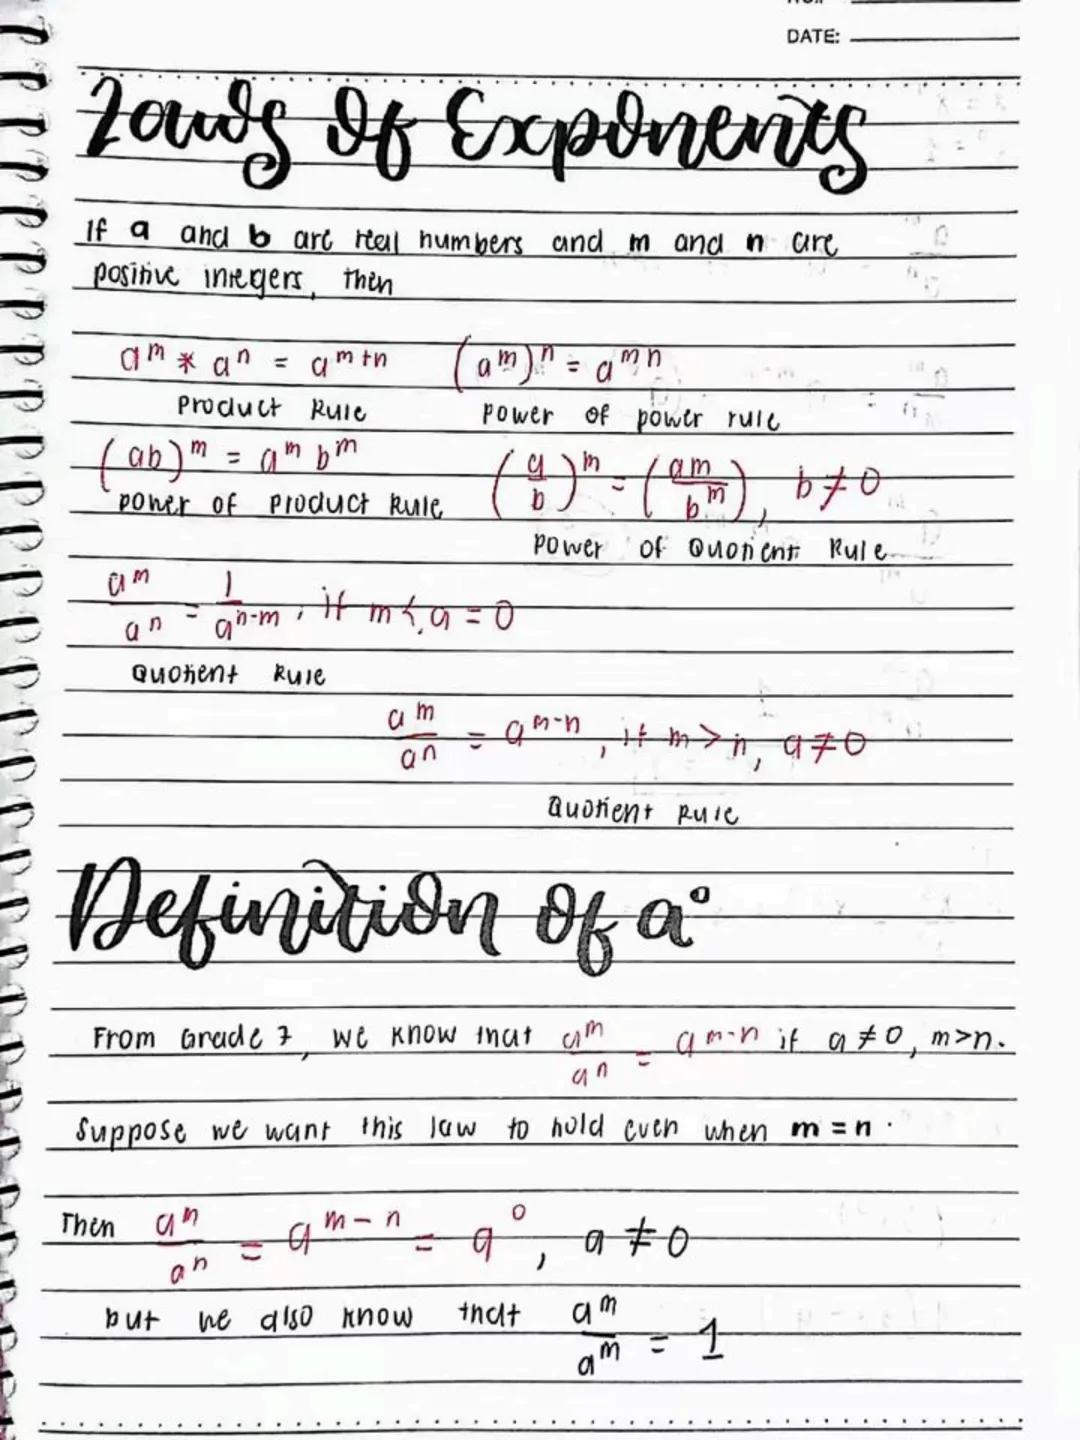 DATE:
Laws Of Exponents
If a and b are real numbers and m and n are
positive integers, then
a^m * a^n = a^{m+n}    (a^m)^n = a^{mn}
Product Rule    power of power rule
(ab)^m = a^m b^m    (a/b)^m = (am/b^m), b ≠ 0
power of product Rule
Power of Quotient Rule
a^m/a^n = 1/a^{n-m}, if m <, a = 0
Quotient Rule
a^m/a^n = a^{m-n}, if m > n, a ≠ 0
Quotient Rule
Definition of a°
From Grade 7, we know that a^m/a^n = a^{m-n} if a ≠ 0, m>n.
Suppose we want this law to hold even when m = n.
Then a^m/a^n = a^{m-n} = a^0, a ≠ 0
but we also know that a^m/a^m = 1